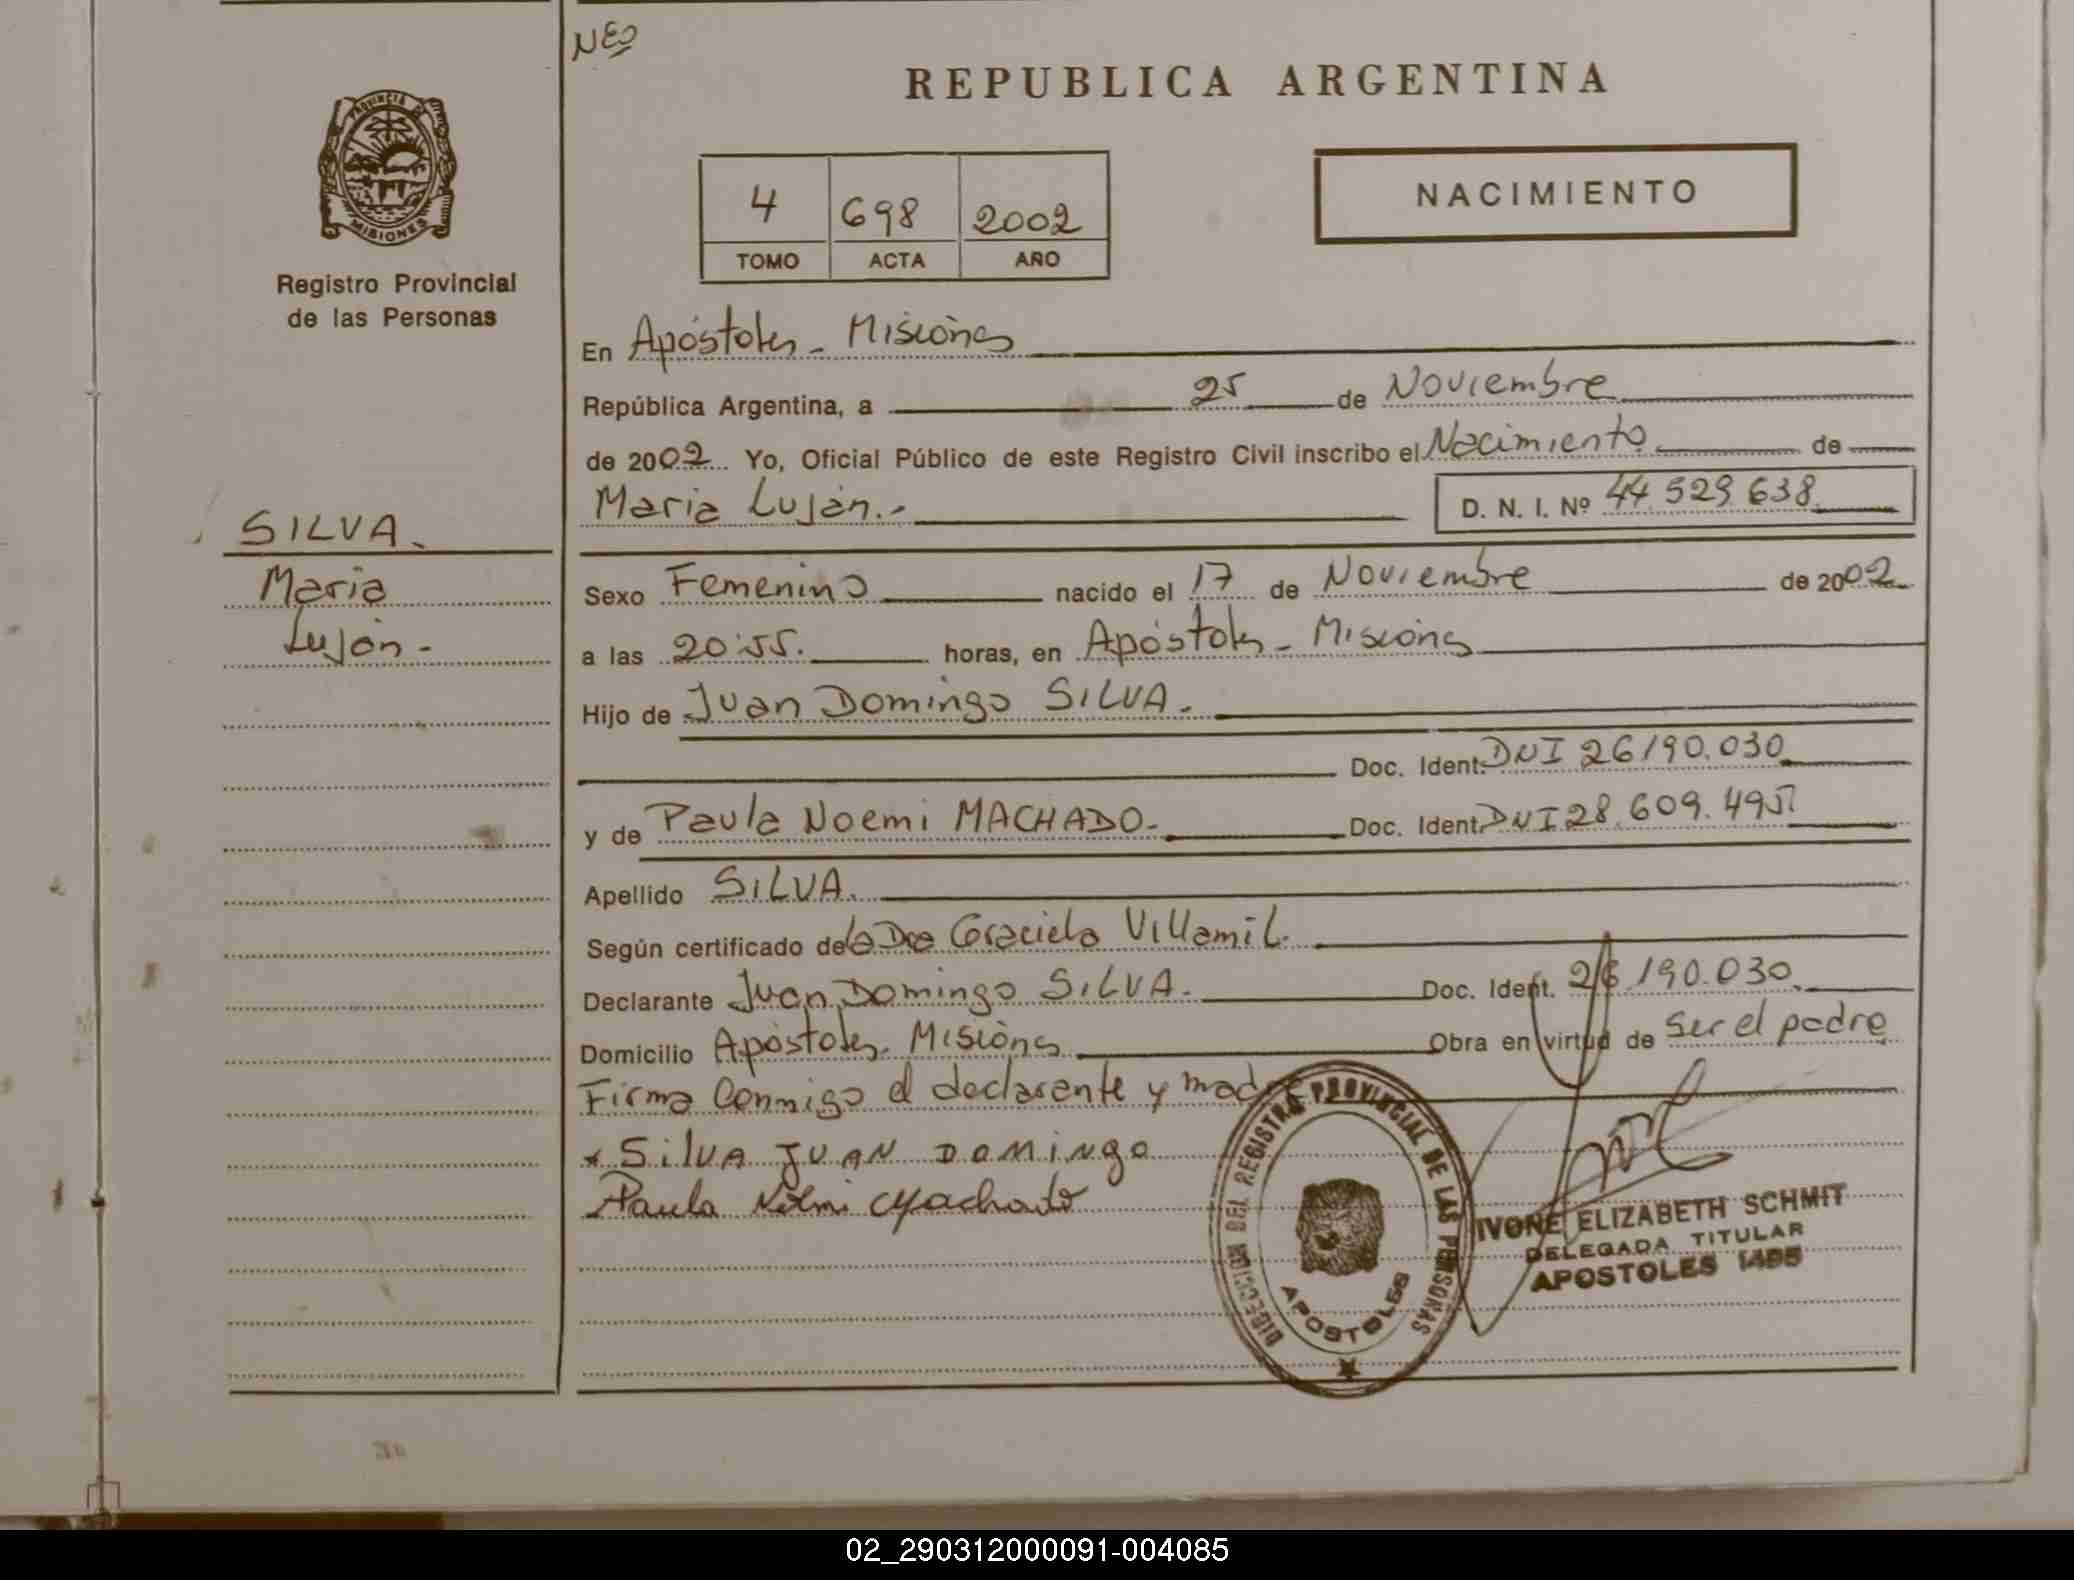 NEO
REPUBLICA ARGENTINA
PROVINCIA DE
MISIONES
Registro Provincial
de las Personas
4 698 2002
TOMO ACTA AÑO
NACIMIENTO
En Apóstoles - Misiones
República Argentina, a 25 de Noviembre
de 2002 Yo, Oficial Público de este Registro Civil inscribo el Nacimiento de
Maria Luján.- D. N. I. Nº 44 529 638
SILVA.
Maria
Luján -
Sexo Femenino nacido el 17 de Noviembre de 2002
a las 20:55. horas, en Apóstoles - Misiones
Hijo de Juan Domingo SILVA.
Doc. Ident. DNI 26190.030
y de Paula Noemi MACHADO- Doc. Ident. DNI 28.609.495
Apellido SILVA.
Según certificado de la Dra Graciela Villamil.
Declarante Juan Domingo SILVA. Doc. Ident. 26 190.030
Domicilio Apóstoles. Misiones Obra en virtud de ser el padre
Firma Conmigo el declarante y madre
SilvA JUAN DOMiNgo
Paula Noemi Machado
DIRECCION DEL REGISTRO PROVINCIAL DE LAS PERSONAS
APOSTOLES
IVONE ELIZABETH SCHMIT
DELEGADA TITULAR
APOSTOLES 1495
02_290312000091-004085